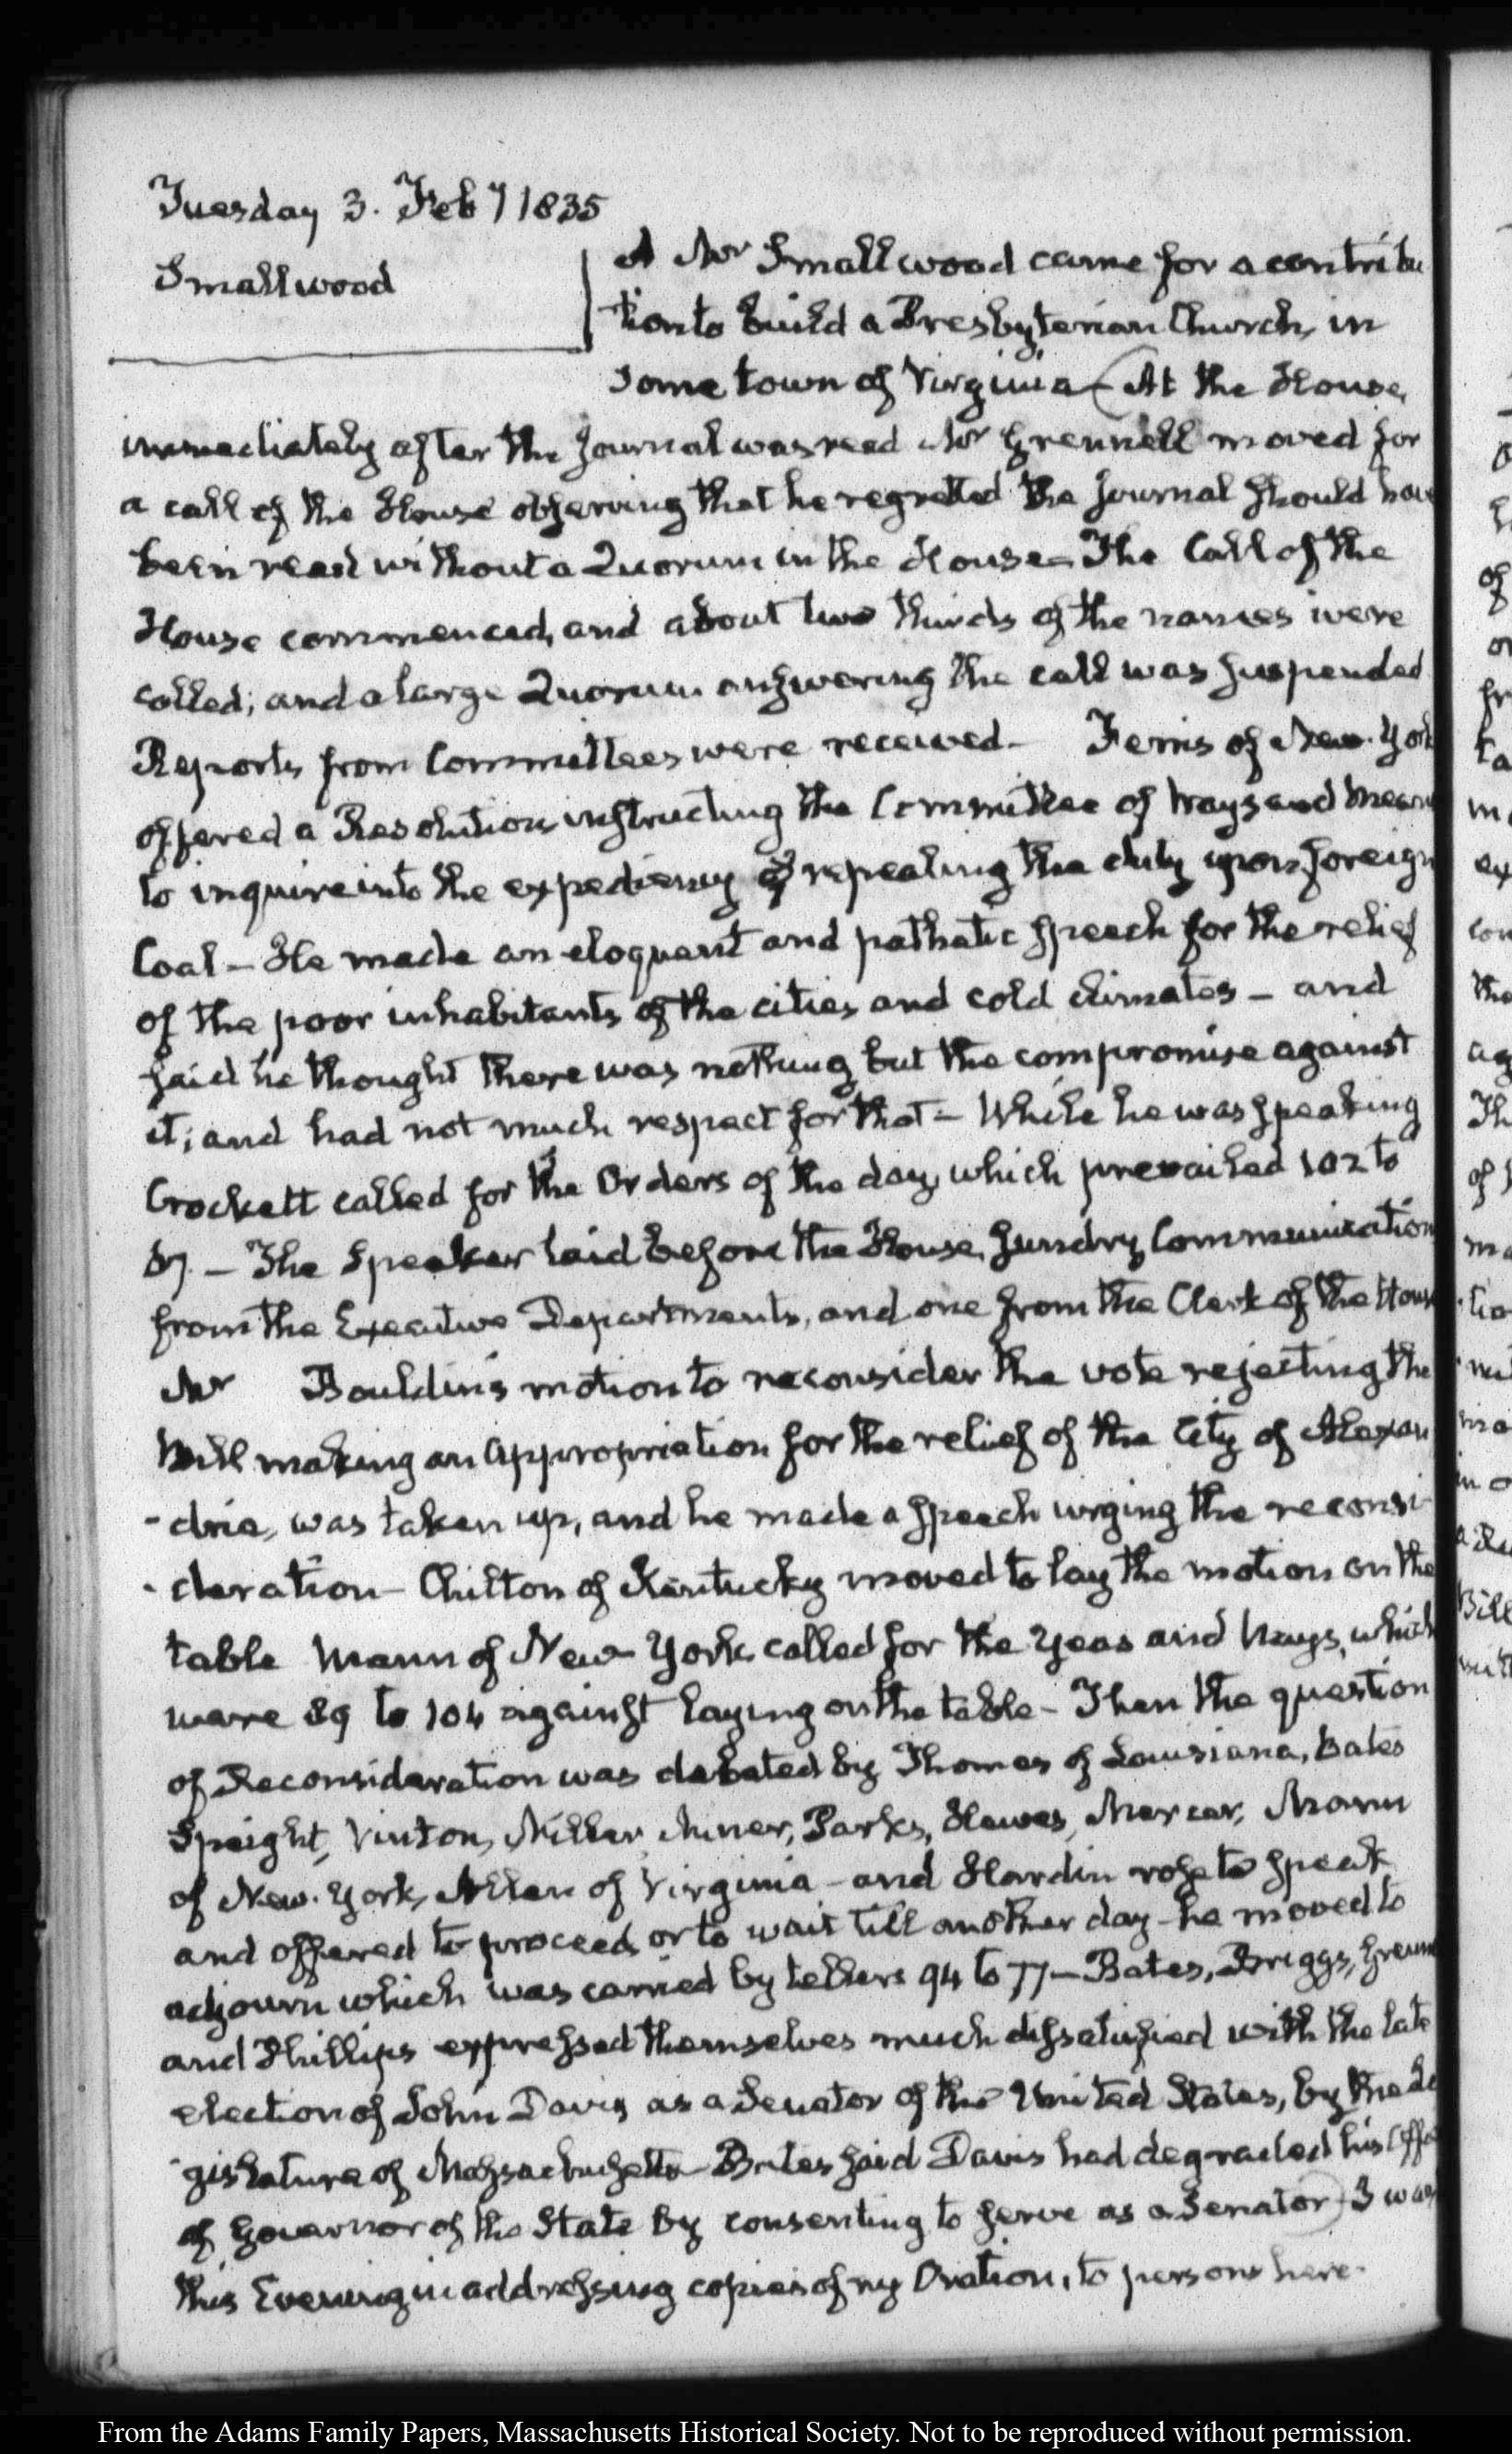 Tuesday 3. Feby 1835
Smallwood
A Mr Smallwood came for a contribu
tion to build a Presbyterian Church, in
some town of Virginia — (At the House,
immediately after the Journal was read Mr Grennell moved for
a call of the House observing that he regretted the Journal should have
been read without a Quorum in the House — The Call of the
House commenced, and about two thirds of the names were
called; and a large Quorum answering the call was suspended
Reports from Committees were received — Ferris of New-York
offered a Resolution instructing the Committee of Ways and Means
to inquire into the expediency of repealing the duty upon foreign
Coal — He made an eloquent and pathetic speech for the relief
of the poor inhabitants of the cities and cold climates — and
said he thought there was nothing but the compromise against
it; and had not much respect for that — While he was speaking
Crockett called for the Orders of the day, which prevailed 102 to
57. — The Speaker laid before the House, sundry Communication
from the Executive Departments, and one from the Clerk of the House
Mr Bouldin's motion to reconsider the vote rejecting the
Bill making an appropriation for the relief of the City of Alexan
-dria, was taken up, and he made a speech urging the reconsi-
-deration — Chilton of Kentucky moved to lay the motion on the
table Mann of New-York called for the Yeas and Nays, which
were 89 to 104 against laying on the table — Then the question
of Reconsideration was debated by Thomas of Louisiana, Bates
Speight, Vinton, Miller Miner, Parks, Hawes, Mercer, Mann
of New-York, Allen of Virginia — and Hardin rose to speak
and offered to proceed, or to wait till another day — he moved to
adjourn which was carried by tellers 94 to 77 — Bates, Briggs, Grenn
and Phillips expressed themselves much dissatisfied with the late
election of John Davis as a Senator of the United States, by the Le
-gislature of Massachusetts — Bates said Davis had degraded his Offi
of Governor of the State by consenting to serve as a Senator) I was
this Evening in addressing copies of my Oration, to persons here.
From the Adams Family Papers, Massachusetts Historical Society. Not to be reproduced without permission.